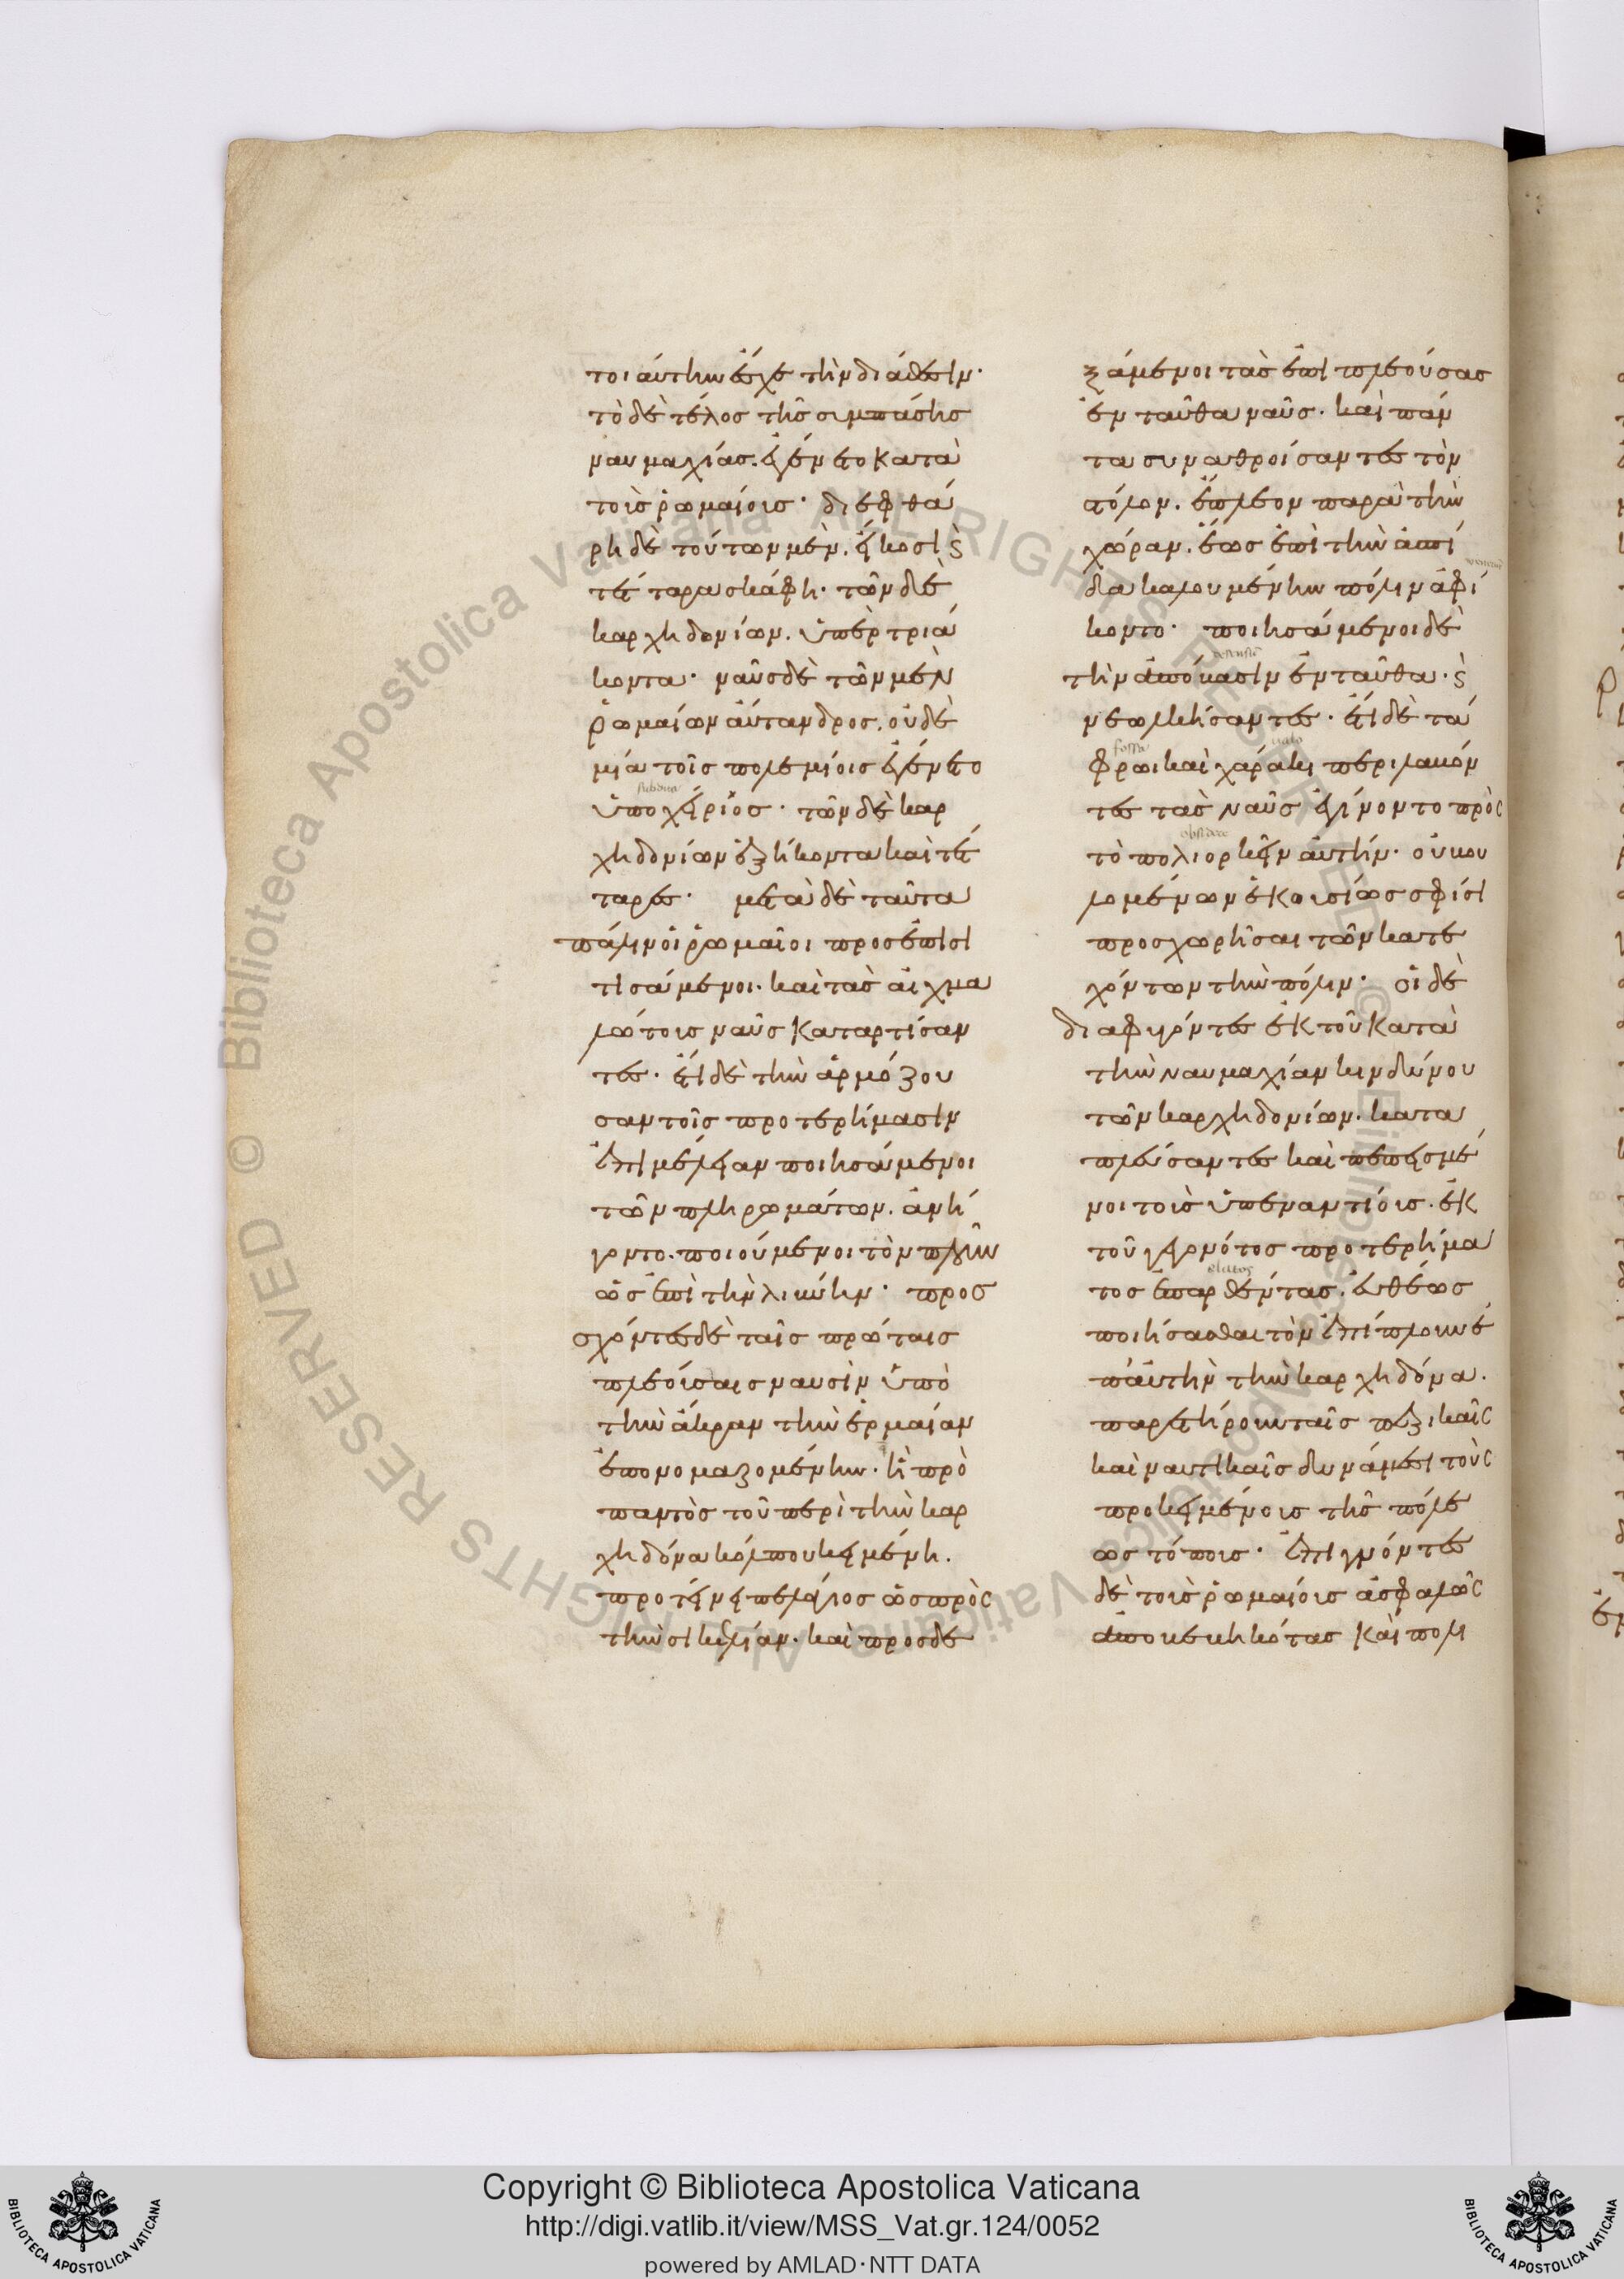 τοιαύτην ἔιχε τὴν διάθεσιν·
τὸ δὲ τέλος τῆς συμπάσης
ναυμαχίας. ἐγένετο κατὰ
τοὺς ῥωμαίους· διεφθά
ρη δὲ τούτων μὲν. εἴκοσι ϗ
τέταρα σκάφη· τῶν δὲ
καρχηδονίων. ὑπὲρ τριά
κοντα· ναῦς δὲ τῶν μὲν
ῥωμαίων αὔτανδρος. οὐδε
μία τοῖς πολεμίοις ἐγένετο
subdita
ὑποχείριος· τῶν δὲ καρ
χηδονίων ἑξήκοντα καὶ τέτ
ταρες· μετὰ δὲ ταῦτα
πάλιν οἱ ῥωμαῖοι προσεπισι
τισάμενοι. καὶ τὰς αἰχμα
λώτους ναῦς καταρτίσαν
τες. ἔτι δὲ τὴν ἁρμόζου
σαν τοῖς προτερήμασιν
ἐπιμέλειαν ποιησάμενοι
τῶν πληρωμάτων. ἀνή
γοντο. ποιούμενοι τὸν πλοῦν
ὡς ἐπὶ τὴν λιβύην· προσ
σχόντες δὲ ταῖς πρώταις
πλεούσαις ναυσὶν ὑπὸ
τὴν ἄκραν τὴν ἑρμαίαν
ἐπονομαζομένην. ἣ πρὸ
παντὸς τοῦ περὶ τὴν καρ
χηδόνα κόλπου κειμένη.
προτείνει πελάγιος ὡς πρὸς
τὴν σικελίαν. καὶ προσδε
ξάμενοι τὰς ἐπιπλεούσας
ἐνταῦθα ναῦς. καὶ πάν
τα συναθροίσαντες τὸν
στόλον. ἔπλεον παρὰ τὴν
χώραν. ἕως ἐπὶ τὴν ἀσπί
δα καλουμένην πόλιν ἀφί
κοντο· ποιησάμενοι δὲ
τὴν ἀπόβασιν ἐνταῦθα. ϗ
νεωλκήσαντες. ἔτι δὲ τά
fossa
φρωι καὶ χάρακι περιλαβόν
τες τὰς ναῦς ἐγίνοντο πρὸς
obsidere
τὸ πολιορκεῖν αὐτήν. οὐ βου
λομένων ἑκουσίως σφίσι
προσχωρῆσαι τῶν κατε
χόντων τὴν πόλιν· οἱ δὲ
διαφυγόντες ἐκ τοῦ κατὰ
τὴν ναυμαχίαν κινδύνου
τῶν καρχηδονίων. κατα
πλεύσαντες καὶ πεπεισμέ
νοι τοὺς ὑπεναντίους. ἐκ
τοῦ γεγονότος προτερήμα
elatos
τος ἐπαρθέντας. εὐθέως
ποιήσασθαι τὸν ἐπίπλουν ἐ
π᾽ αὐτὴν τὴν καρχηδόνα.
παρετήρουν ταῖς πεζικαῖς
καὶ ναυτικαῖς δυνάμεσι τοὺς
προκειμένους τῆς πόλε
ως τόπους· ἐπιγνόντες
δὲ τοὺς ῥωμαίους ἀσφαλῶς
ἀποβεβηκότας καὶ πολι
Copyright © Biblioteca Apostolica Vaticana
http://digi.vatlib.it/view/MSS_Vat.gr.124/0052
powered by AMLAD·NTT DATA
BIBLIOTECA APOSTOLICA VATICANA
BIBLIOTECA APOSTOLICA VATICANA